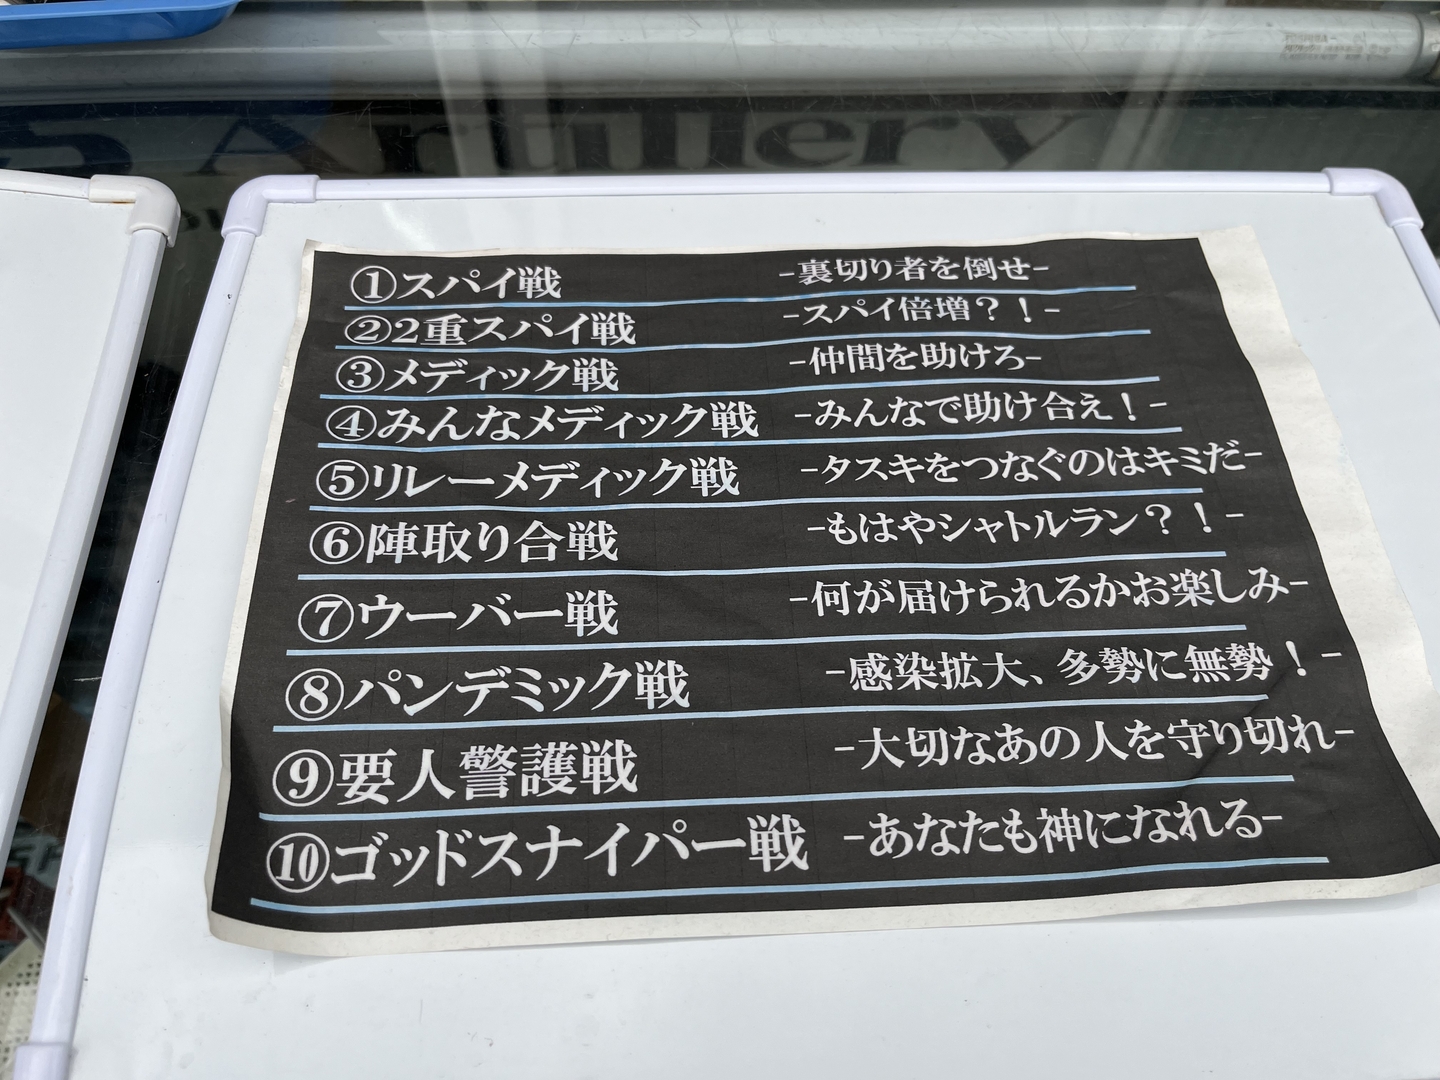 Artillery
①スパイ戦 -裏切り者を倒せ-
②2重スパイ戦 -スパイ倍増？！-
③メディック戦 -仲間を助けろ-
④みんなメディック戦 -みんなで助け合え！-
⑤リレーメディック戦 -タスキをつなぐのはキミだ-
⑥陣取り合戦 -もはやシャトルラン？！-
⑦ウーバー戦 -何が届けられるかお楽しみ-
⑧パンデミック戦 -感染拡大、多勢に無勢！-
⑨要人警護戦 -大切なあの人を守り切れ-
⑩ゴッドスナイパー戦 -あなたも神になれる-